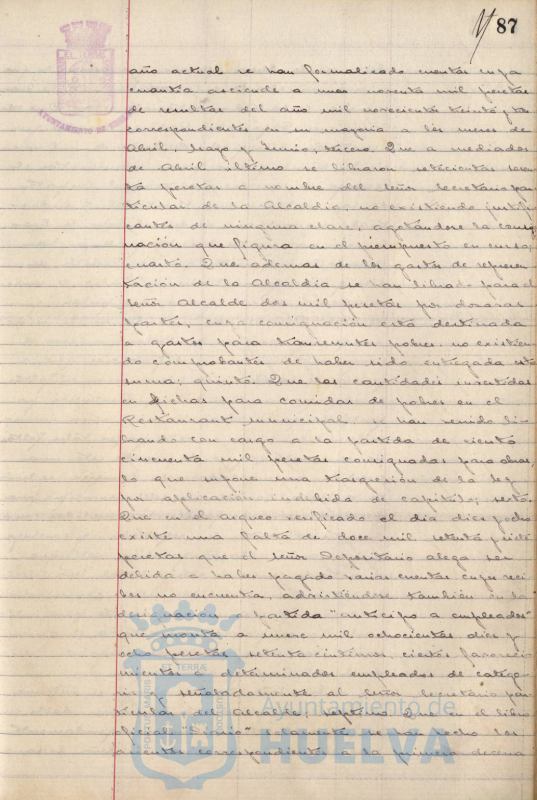 87
año actual se han formalizado cuentas cuya
cuantía asciende a unas noventa mil pesetas
de resultas del año mil novecientos treinta y tres
correspondientes en su mayoría a los meses de
Abril, Mayo y Junio; tercero. Que a mediados
de Abril último se libraron setecientas seten-
ta pesetas a nombre del señor Secretario par-
ticular de la Alcaldía, no existiendo justifi-
cantes de ninguna clase, agotándose la consig-
nación que figura en el presupuesto en curso;
cuarto. Que ademas de los gastos de represen-
tación de la Alcaldía se han librado para el
señor Alcalde dos mil pesetas por dozavas
partes, cuya consignación está destinada
a gastos para transeuntes pobres no existien-
do comprobantes de haber sido entregada esta
suma; quinto. Que las cantidades invertidas
en fichas para comidas de pobres en el
Restaurant municipal, se han venido li-
brando con cargo a la partida de ciento
cincuenta mil pesetas consignadas para obras,
lo que supone una trasgresión de la ley
por aplicación indebida de capítulo; sexto.
Que en el arqueo verificado el día diez
existe una falta de doce mil
pesetas que el señor Depositario alega ser
debida a haber pagado varias cuentas cuyos reci-
bos no encuentra, advirtiéndose también en la
designación o partida "anticipo a empleados"
que monta a nueve mil ochocientas diez y
ocho pesetas setenta céntimos, ciertos favoreci-
mientos a determinados empleados de catego-
ría y señaladamente al señor Secretario par-
ticular del alcalde; septimo. Que en el libro
oficial "Diario" solamente se han hecho los
asientos correspondientes a la primera decena
AYUNTAMIENTO DE
Ayuntamiento de
HUELVA